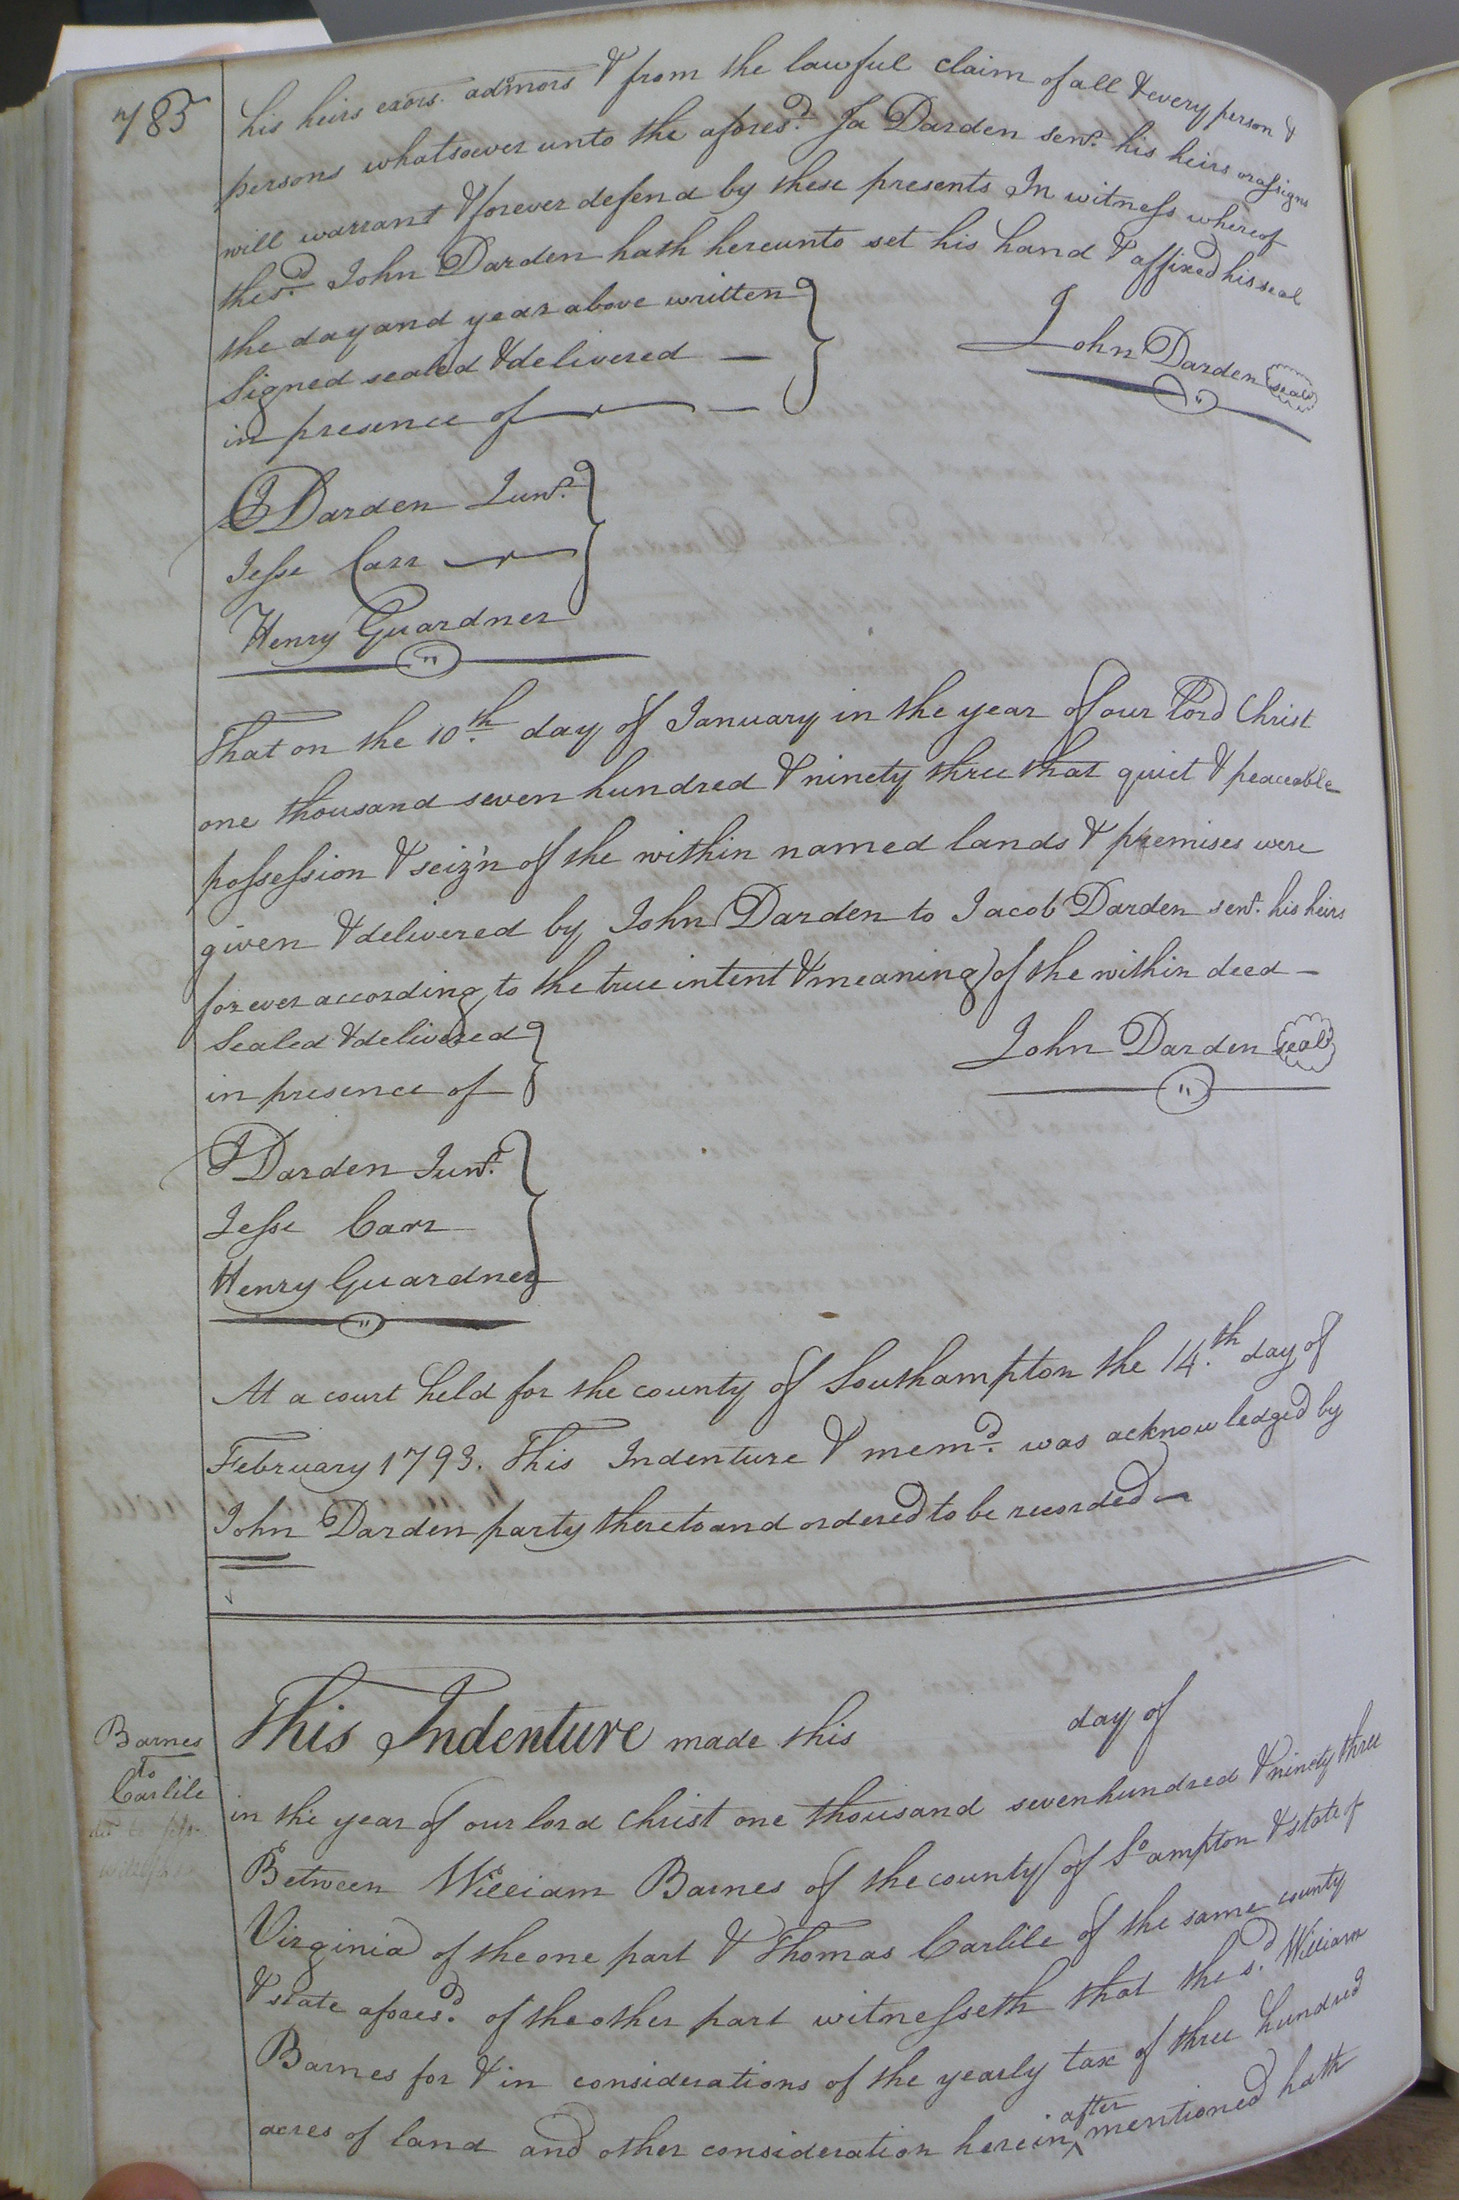 785
his heirs exors. admors & from the lawful claim of all & every person &
persons whatsoever unto the afores.d Ja Darden sen.r his heirs or assigns
will warrant & forever defend by these presents In witness whereof
the s.d John Darden hath hereunto set his hand & affixed his seal
the day and year above written
Signed sealed & delivered —
in presence of —
John Darden seal
J Darden Jun.r
Jesse Carr
Henry Guardner
That on the 10.th day of January in the year of our Lord Christ
one thousand seven hundred & ninety three that quiet & peaceable
possession & seiz'n of the within named lands & premises were
given & delivered by John Darden to Jacob Darden sen.r his heirs
for ever according to the true intent & meaning of the within deed —
Sealed & delivered
in presence of
John Darden seal
J Darden Jun.r
Jesse Carr
Henry Guardner
At a court held for the county of Southampton the 14.th day of
February 1793. This Indenture & mem.d was acknowledged by
John Darden party thereto and ordered to be recorded —
Barnes
to
Carlile
This Indenture made this day of
in the year of our lord christ one thousand seven hundred & ninety three
Between William Barnes of the county of So ampton & state of
Virginia of the one part & Thomas Carlile of the same county
& state afores.d of the other part witnesseth that the s.d William
Barnes for & in considerations of the yearly tax of three hundred
acres of land and other consideration herein after mentioned hath